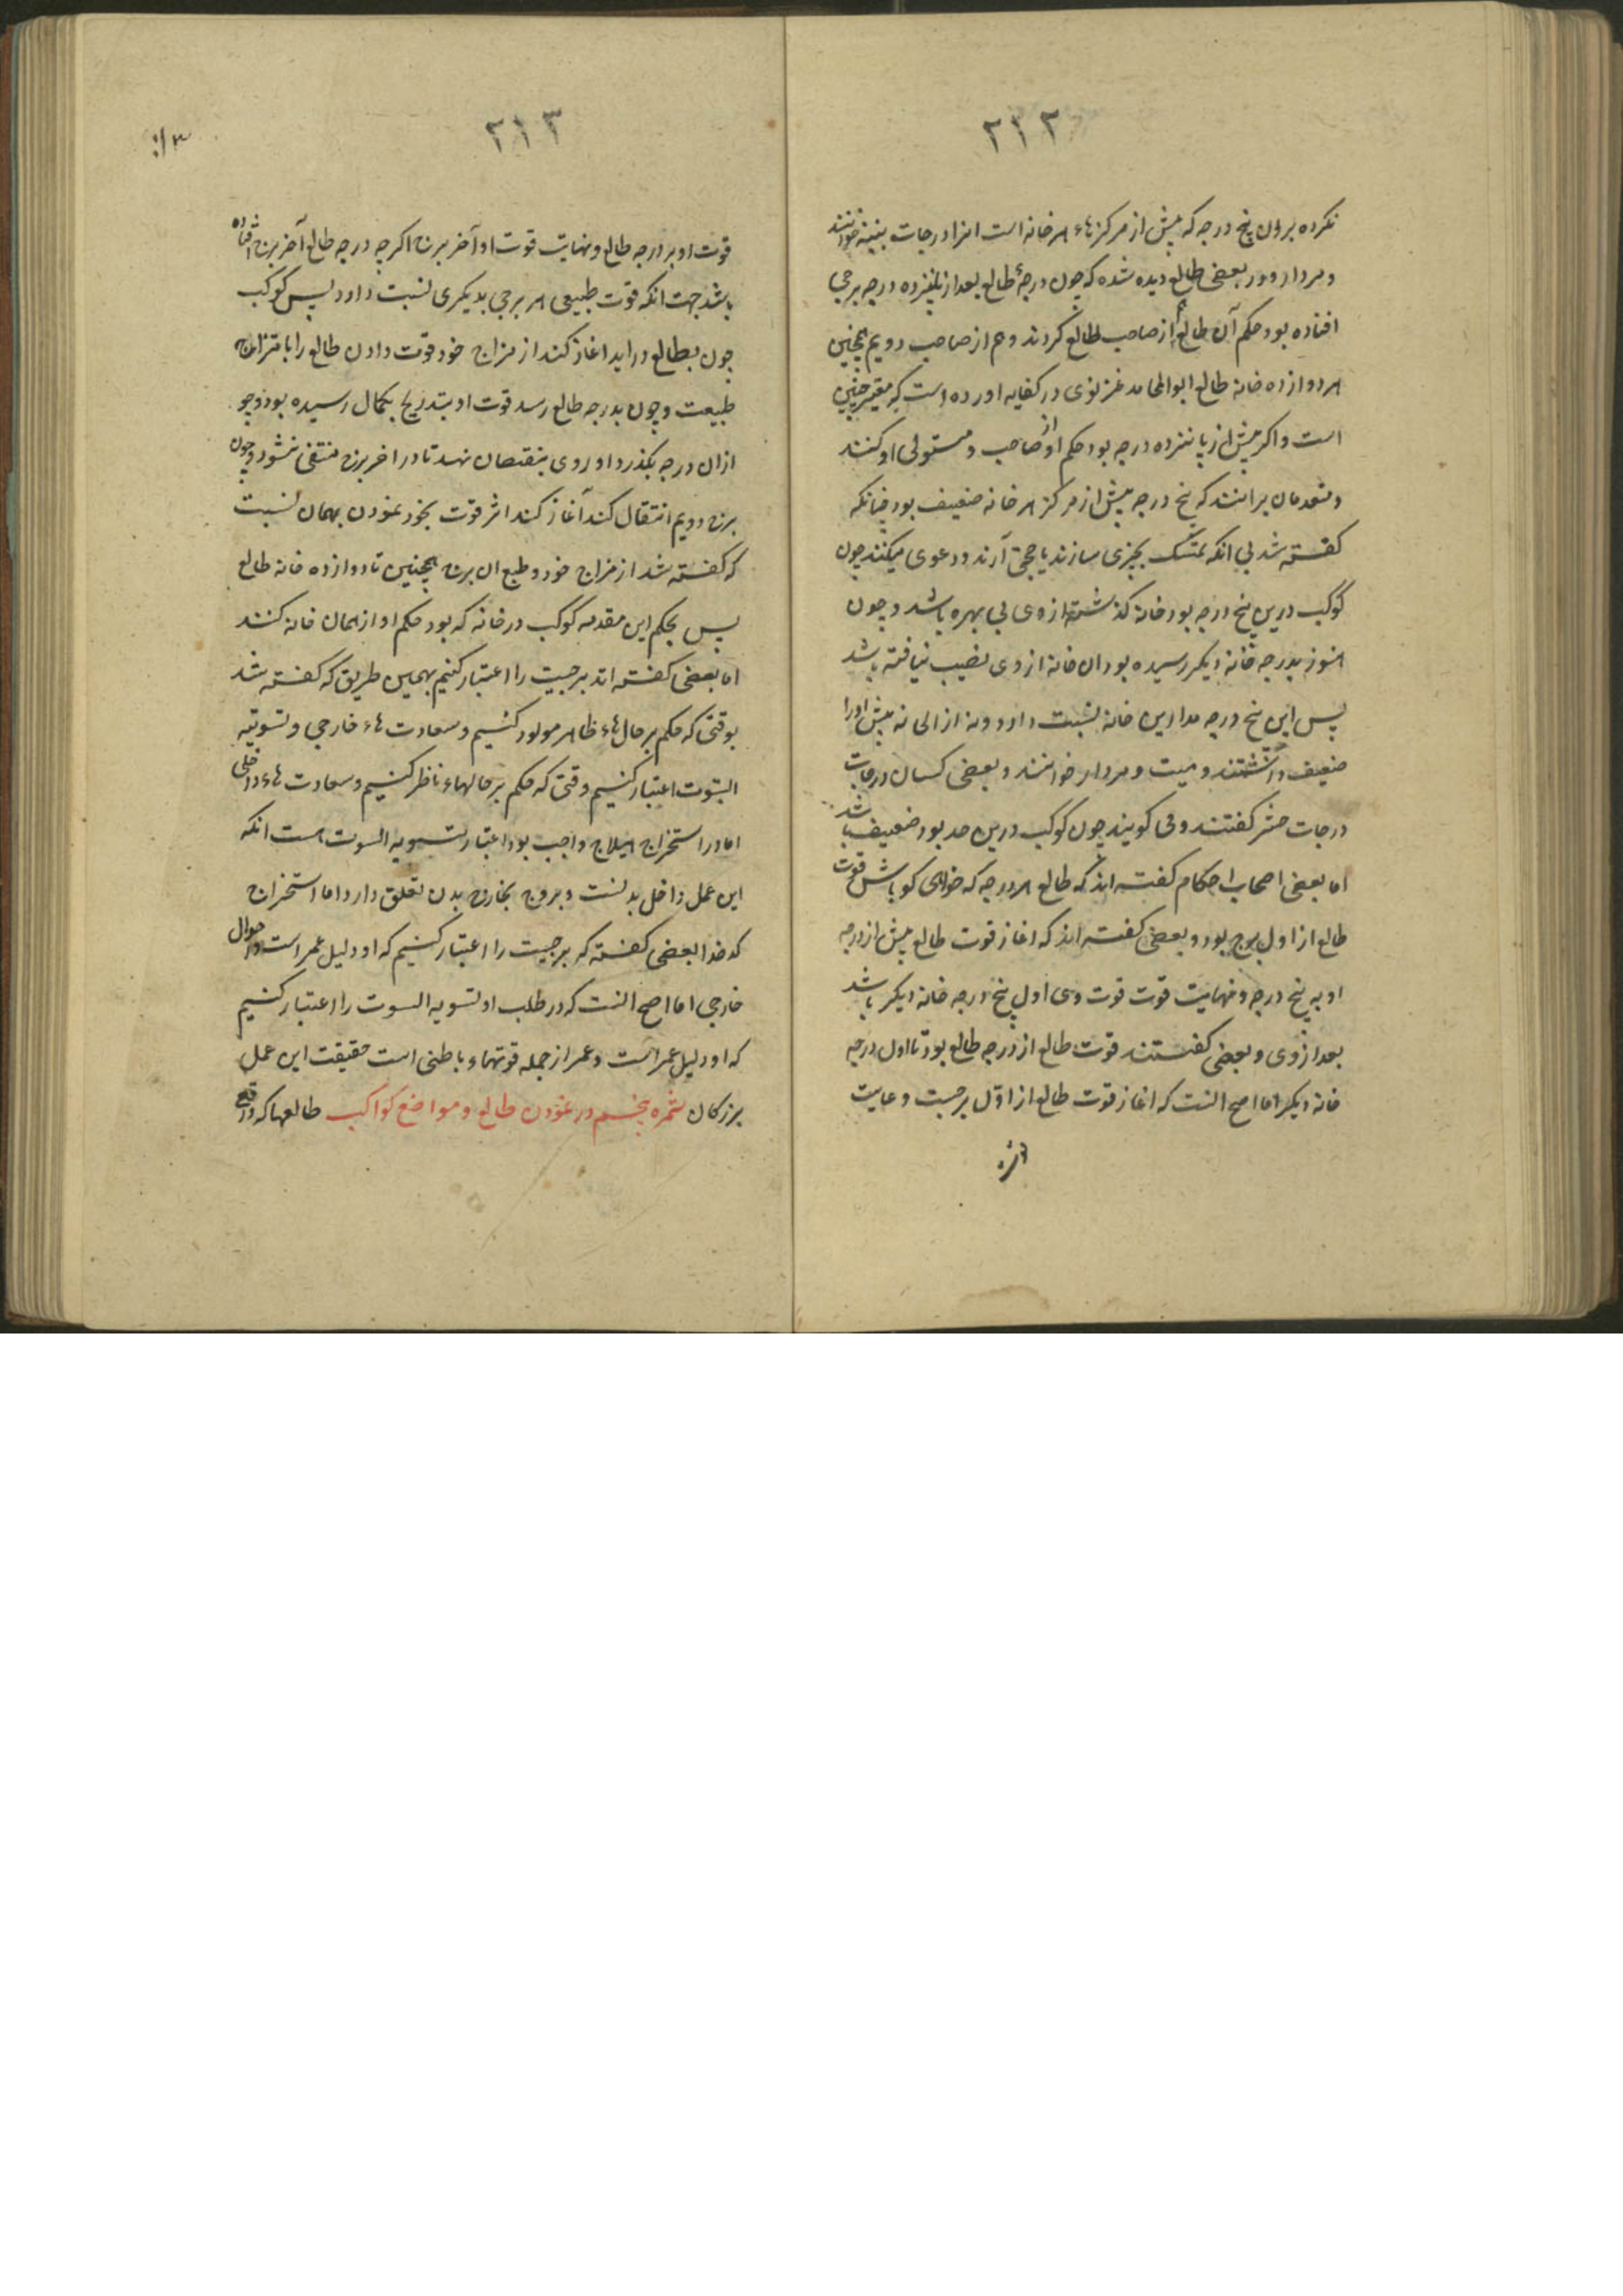 ۲۱۲
نکرده برون پنج درجه که پیش از مرکزهاء هر خانه است انرا درجات خوانند
و مردار و در بعضی طالع دیده شده که چون درجهٔ طالع بعد از پانزده درجه برجی
افتاده بود حکم آن طالع از صاحب طالع کردند و هم از صاحب دویم همچنین
هر دوازده خانه طالع ابوالمحامد غزنوی در کفایه اورده است که چنین
است و اکر پیش از پانزده درجه بود حکم او از صاحب و مستولی او کنند
و متقدمان برانند که پنج درجه پیش از مرکز هر خانه ضعیف بود چنانکه
کفته شد بی انکه تمسک بچیزی سازند یا حجتی آرند و دعوی میکنند چون
کوکب درین پنج درجه بود خانه کذشته از وی بی بهره باشد و چون
هنوز بدرجه خانه دیکر رسیده بود ان خانه از وی نصیب نیافته باشد
پس این پنج درجه مدا این خانه نسبت دارد و نه از ان خانه پیش اورا
ضعیف داشتند و میت و مردار خوانند و بعضی کسان درجات
درجات حشر کفتند و می کویند چون کوکب درین حد بود ضعیف باشد
اما بعضی اصحاب احکام کفته اند که طالع هر درجه که خواهی کو باش قوت
طالع از اول برج بود و بعضی کفته اند که اغاز قوت طالع پیش از درجه
او به پنج درجه و نهایت قوت قوت وی اول پنج درجه خانه دیکر باشد
بعد از وی و بعضی کفتند قوت طالع از درجه طالع بود تا اول درجه
خانه دیکر اما اصح انست که اغاز قوت طالع از اول برجست و غایت
۲۱۳
قوت او بر درجه طالع و نهایت قوت او آخر برج اکرچه درجه طالع آخر برج افتاده
باشد جهت انکه قوت طبیعی هر برجی بدیکری نسبت دارد پس کوکب
چون بطالع دراید اغاز کند از مزاج خود قوت دادن طالع را بامتزاج
طبیعت و چون بدرجه طالع رسد قوت او بتدریج بکمال رسیده بود و چو
ازان درجه بکذرد او روی بنقصان نهد تا در اخر برج منتفی شود و چون
برج دویم انتقال کند آغاز کند اثر قوت بخود نمودن بهمان نسبت
که کفته شد از مزاج خود و طبع ان برج همچنین تا دوازده خانه طالع
پس بحکم این مقدمه کوکب در خانه که بود حکم او از همان خانه کنند
اما بعضی کفته اند برجیت را اعتبار کنیم بهمین طریق که کفته شد
بوقتی که حکم بر حالهاء ظاهر مولود کنیم و سعادت هاء خارجی و تسویة
البیوت اعتبار کنیم وقتی که حکم بر حالهاء ناظر کنیم و سعادت هاء داخلی
اما در استخراج هیلاج واجب بود اعتبار تسویه البیوت است انکه
این عمل داخل بدنست و بروج بخارج بدن تعلق دارد اما استخراج
کدخدا بعضی کفته که برجیت را اعتبار کنیم که او دلیل عمر است و احوال
خارجی اما اصح انست که در طلب او تسویه البیوت را اعتبار کنیم
که او دلیل عمر است و عمر از جمله قوتهاء باطنی است حقیقت این عمل
بزرکان ثمره پنجم در نمودن طالع و مواضع کواکب طالعها که